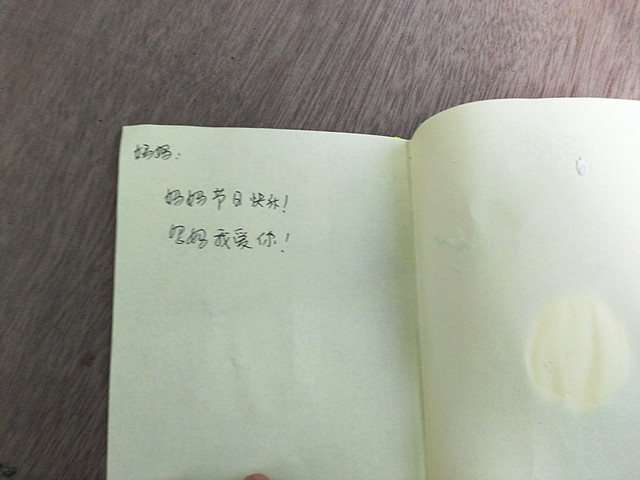 妈妈：
妈妈节日快乐！
妈妈我爱你！